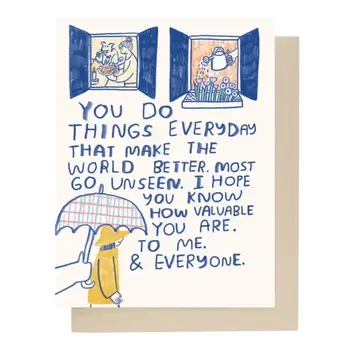 YOU DO
THINGS EVERYDAY
THAT MAKE THE
WORLD BETTER. MOST
GO UNSEEN. I HOPE
YOU KNOW
HOW VALUABLE
YOU ARE.
TO ME.
& EVERYONE.